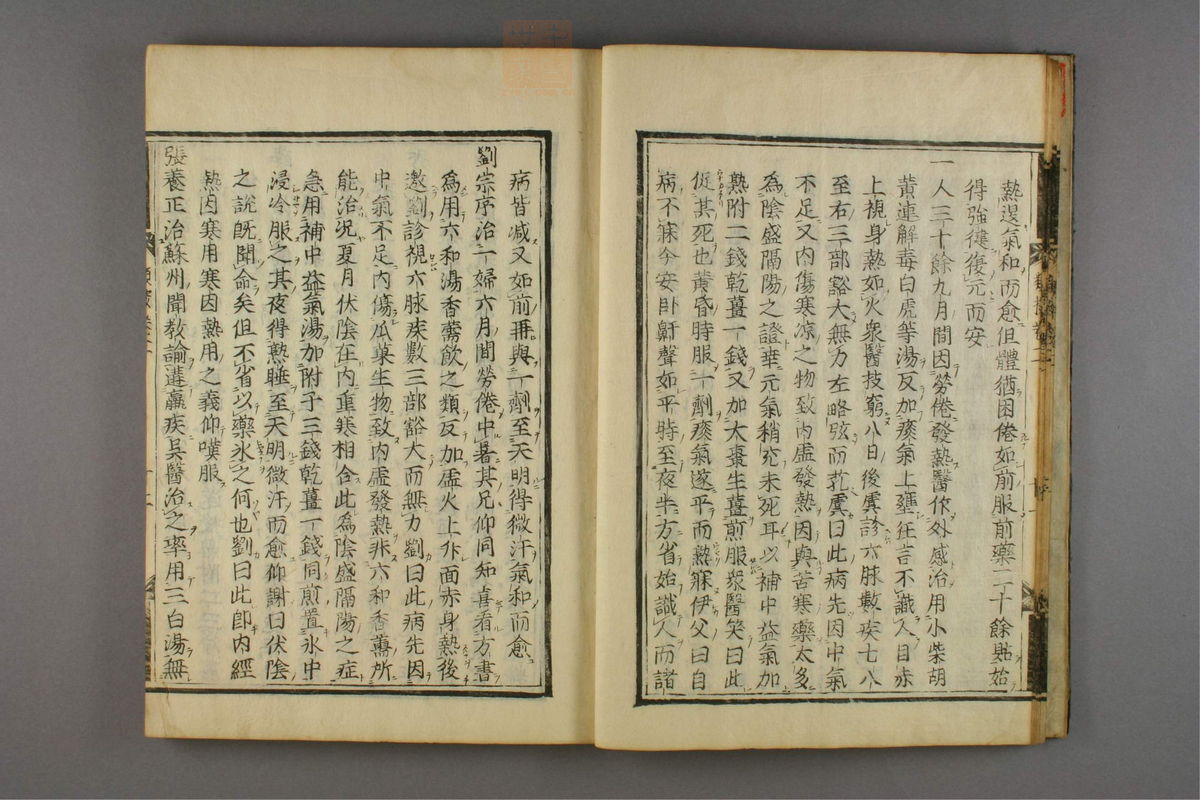 熱退氣和而愈但體猶困倦如前服前藥二十餘貼始
得強健復元而安
一人三十餘九月間因勞倦發熱醫作外感治用小柴胡
黄連解毒白虎等湯反加痰氣上壅狂言不識人目赤
上視身熱如火衆醫技窮八日後虞診六脉數疾七八
至右三部豁大無力左略弦而芤虞曰此病先因中氣
不足又内傷寒凉之物致内虛發熱因與苦寒藥太多
為陰盛隔陽之證幸元氣稍充未死耳以補中益氣加
熟附二錢乾薑一錢又加大棗生薑煎服衆醫笑曰此
促其死也黄昏時服一劑痰氣遂平而熟寐伊父曰自
病不寐今安卧鼾聲如平時至夜半方省始識人而諸
病皆减又如前再與一劑至天明得微汗氣和而愈
劉宗序治一婦六月間勞倦中暑其兄仰同知喜看方書
為用六和湯香薷飲之類反加虛火上作面赤身熱後
邀劉診視六脉疾數三部豁大而無力劉曰此病先因
中氣不足内傷瓜菓生物致内虛發熱非六和香薷所
能治况夏月伏陰在内重寒相合此為陰盛隔陽之症
急用補中益氣湯加附子三錢乾薑一錢同煎置氷中
浸冷服之其夜得熟睡至天明微汗而愈仰謝曰伏陰
之說既聞命矣但不省以藥氷之何也劉曰此即内經
熱因寒用寒因熱用之義仰嘆服
張養正治蘇州聞教諭遘羸疾吴醫治之率用三白湯無